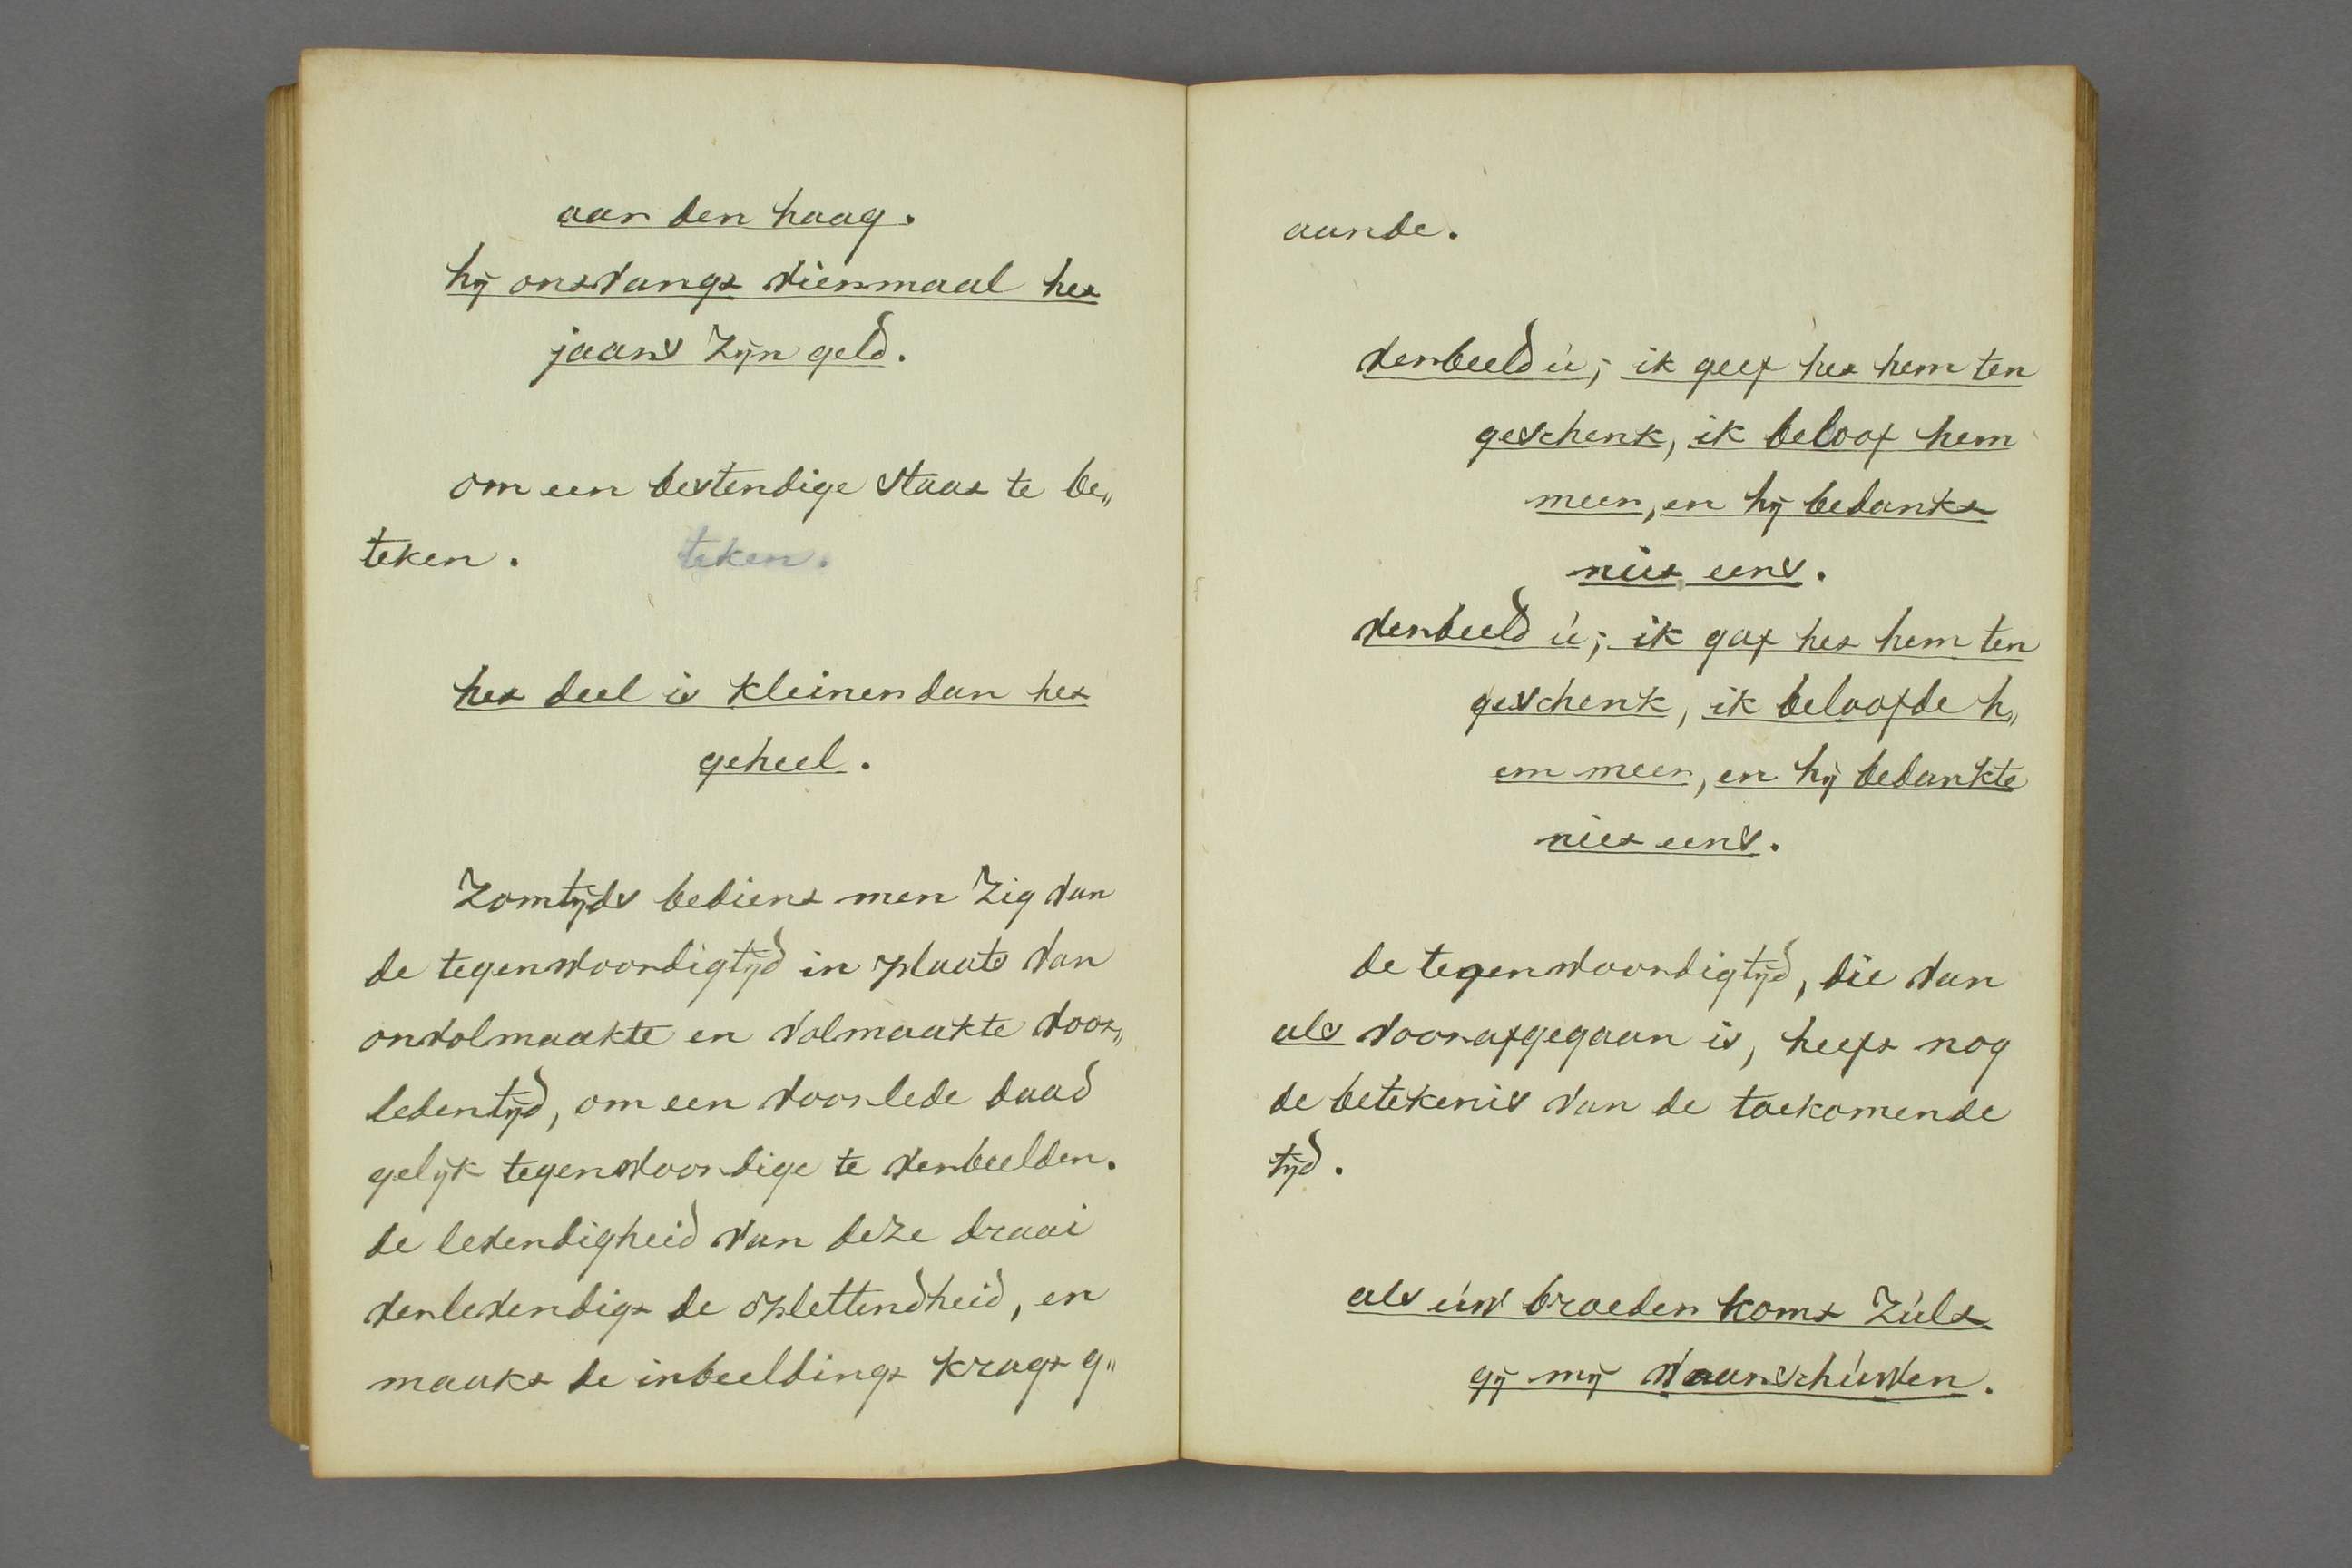 aan den haag.
hij ontvangt viermaal het
jaars Zijn geld.
om een bestendige staat te be„
teken. teken.
het deel is kleiner dan het
geheel.
Zomtijds bedient men Zig van
de tegenwoordigtijd in plaats van
onvolmaakte en volmaakte voor„
ledentijd, om een voorlede daad
gelijk tegenwoordige te verbeelden.
de levendigheid van deze draai
verlevendigt de oplettendheid, en
maakt de inbeeldings kragt g„
aande.
verbeeld ú; ik geef het hem ten
geschenk, ik beloof hem
meer, en hij bedankt
niet eens.
verbeeld ú; ik gaf het hem ten
geschenk, ik beloofde h„
em meer, en hij bedankte
niet eens.
de tegenwoordigtijd, die van
als voorafgegaan is, heeft nog
de betekenis van de toekomende
tijd.
als úw broeder komt Zúlt
gij mij waarschúwen.